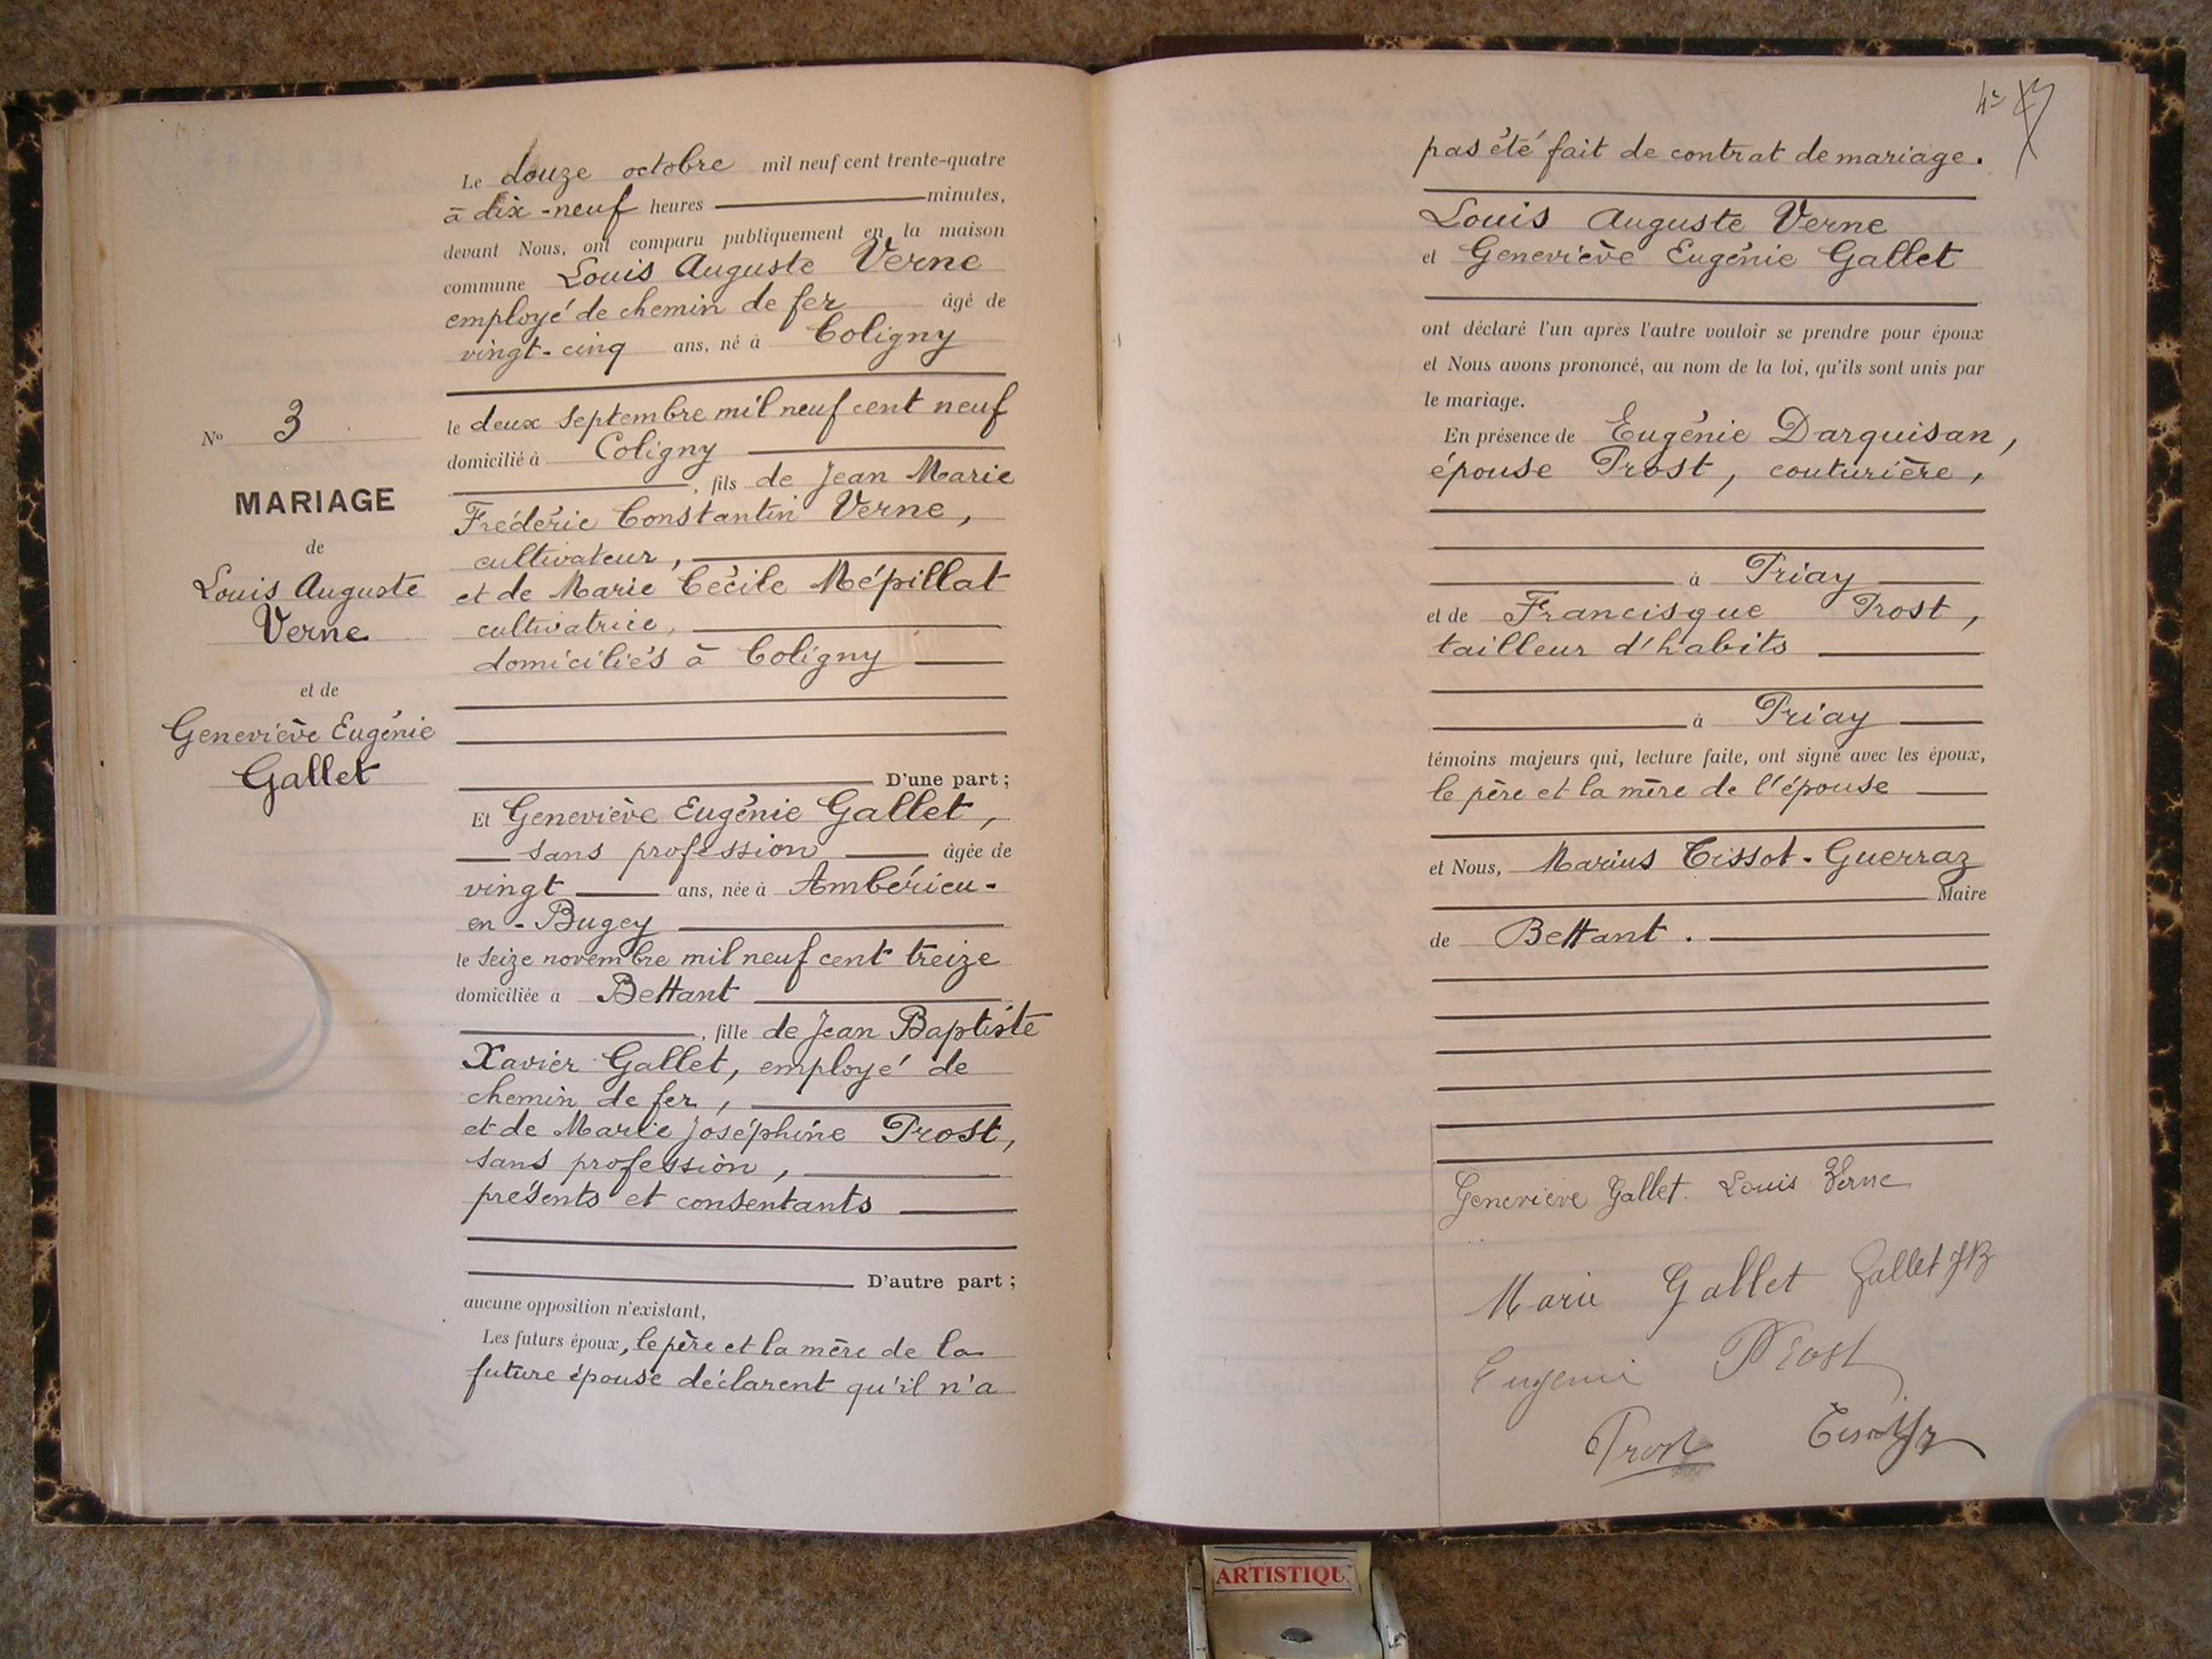 N° 3
MARIAGE
de
Louis Auguste
Verne
et de
Geneviève Eugénie
Gallet
Le douze octobre mil neuf cent trente-quatre
à dix-neuf heures minutes,
devant Nous, ont comparu publiquement en la maison
commune Louis Auguste Verne
employé de chemin de fer âgé de
vingt-cinq ans, né à Coligny
le deux septembre mil neuf cent neuf
domicilié à Coligny
, fils de Jean Marie
Frédéric Constantin Verne,
cultivateur,
et de Marie Cécile Mépillat
cultivatrice,
domiciliés à Coligny
D'une part ;
Et Geneviève Eugénie Gallet,
sans profession âgée de
vingt ans, née à Ambérieu-
en-Bugey
le seize novembre mil neuf cent treize
domiciliée à Bettant
, fille de Jean Baptiste
Xavier Gallet, employé de
chemin de fer,
et de Marie Joséphine Prost,
sans profession,
présents et consentants
D'autre part ;
aucune opposition n'existant,
Les futurs époux, le père et la mère de la
future épouse déclarent qu'il n'a
pas été fait de contrat de mariage.
Louis Auguste Verne
et Geneviève Eugénie Gallet
ont déclaré l'un après l'autre vouloir se prendre pour époux
et Nous avons prononcé, au nom de la loi, qu'ils sont unis par
le mariage.
En présence de Eugénie Darquisan,
épouse Prost, couturière,
à Priay
et de Francisque Prost,
tailleur d'habits
à Priay
témoins majeurs qui, lecture faite, ont signé avec les époux,
le père et la mère de l'épouse
et Nous, Marius Tissot-Guerraz
Maire
de Bettant.
Geneviève Gallet. Louis Verne
Marie Gallet Gallet JB
Eugenie Prost
Prost
ARTISTIQU